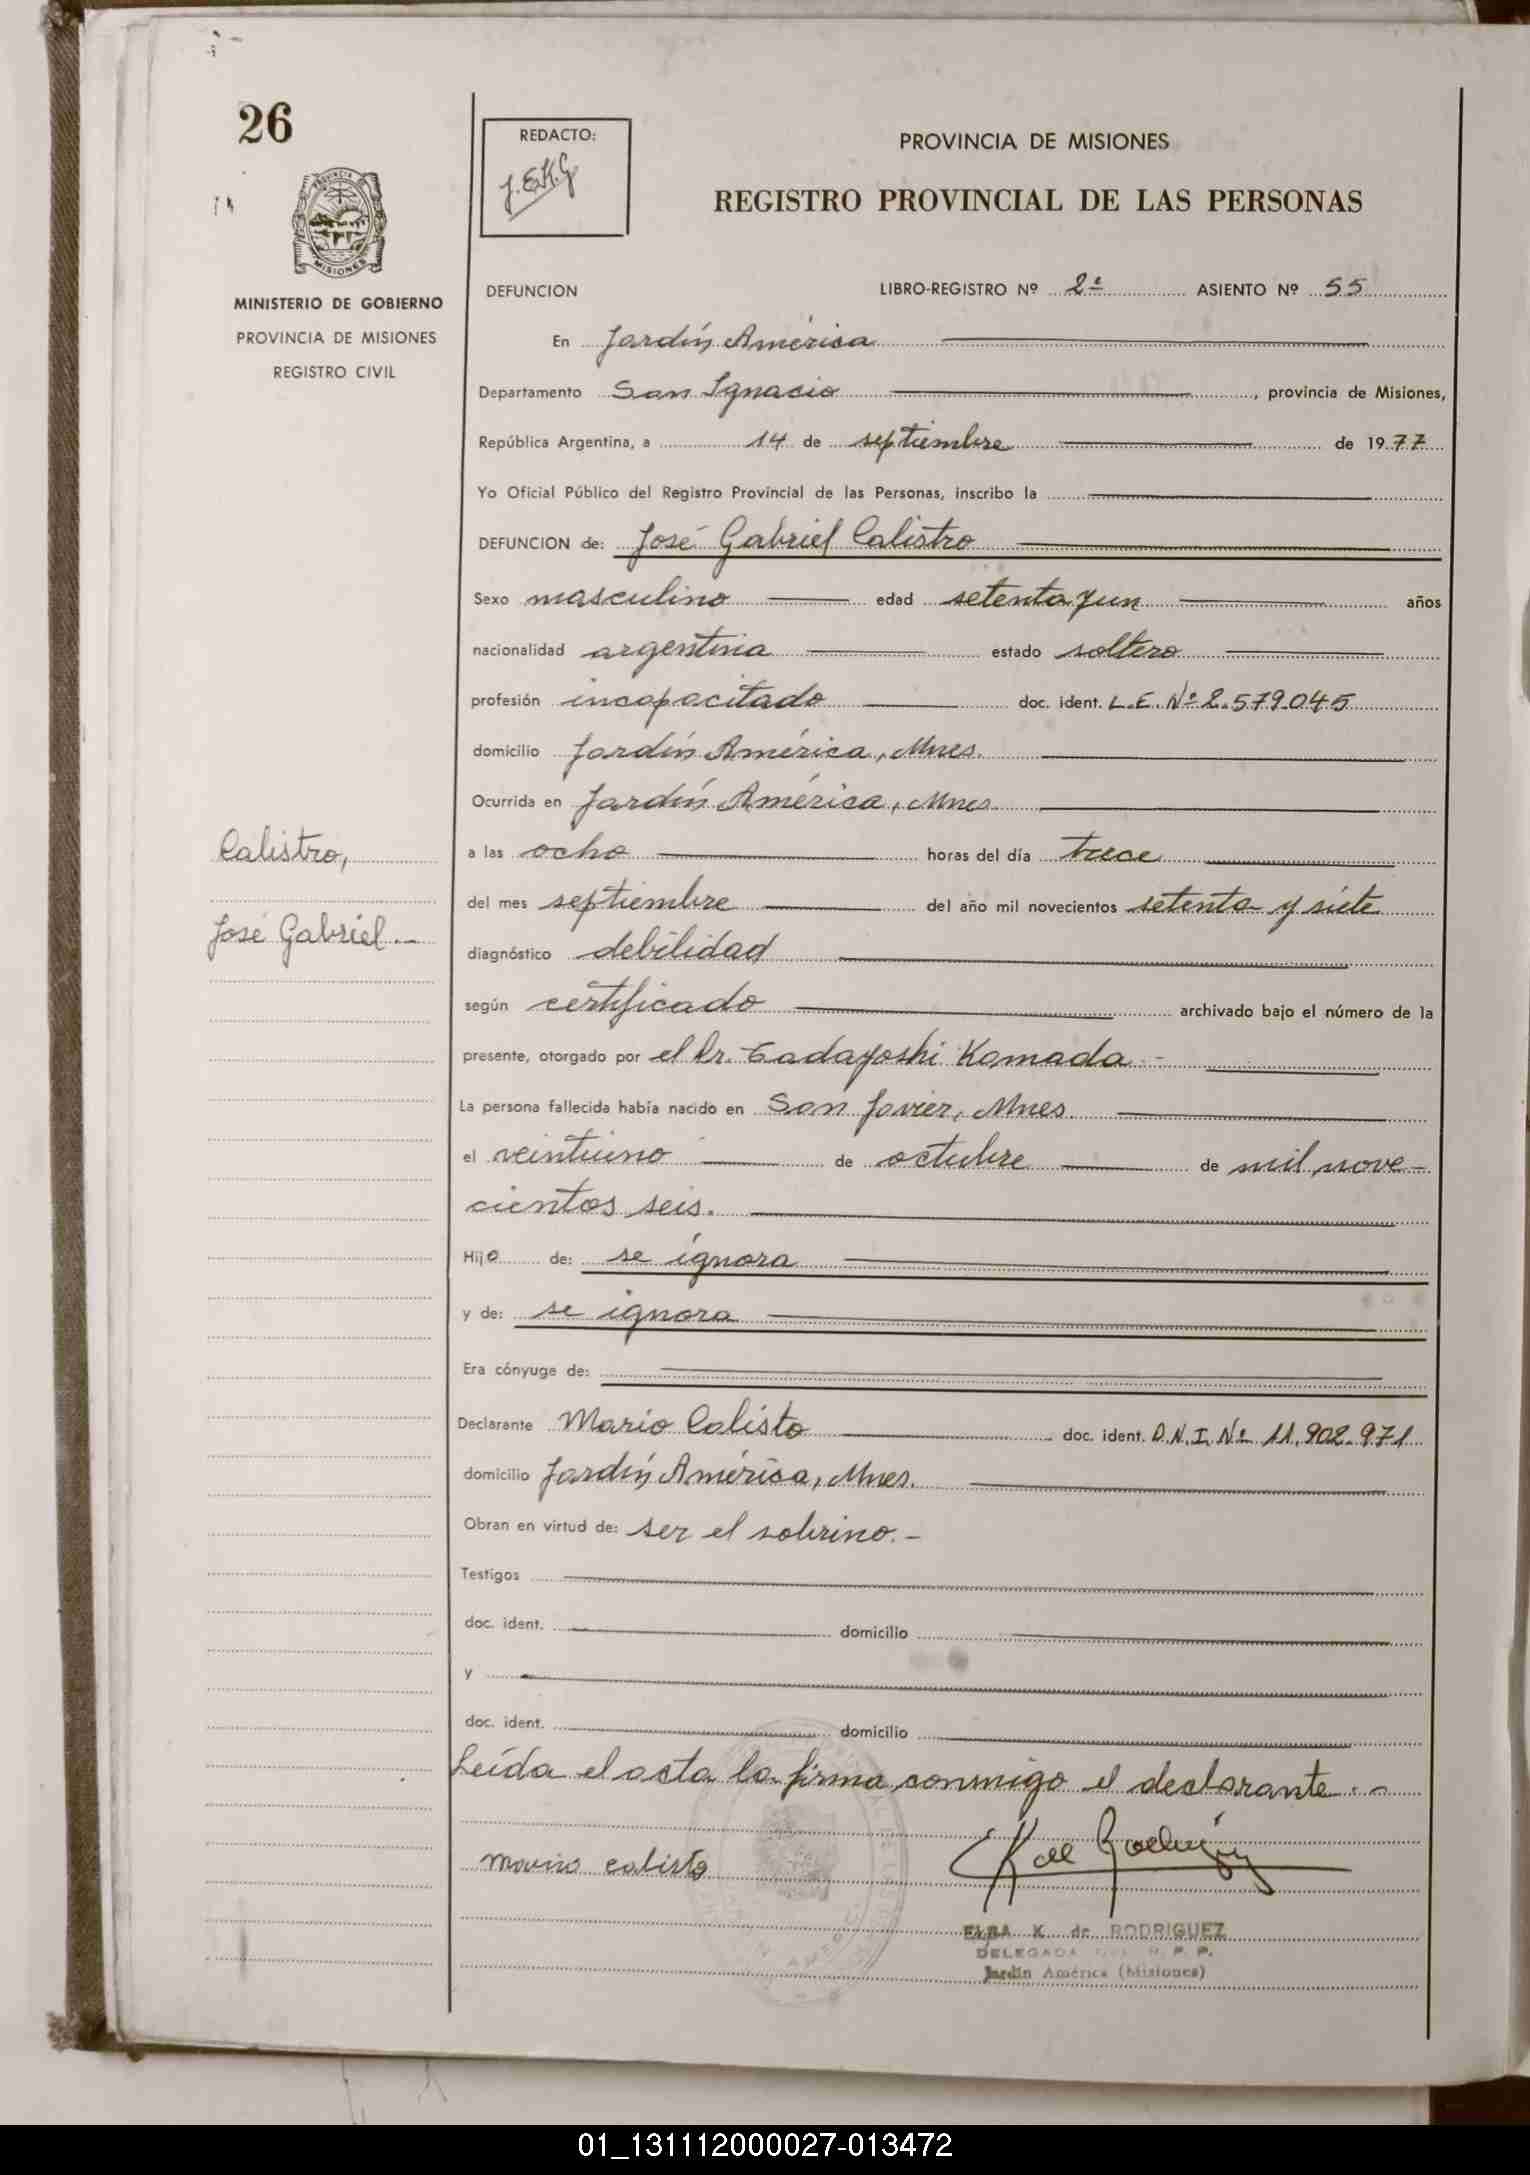 26
REDACTO:
J.E.K.G.
PROVINCIA DE MISIONES
REGISTRO PROVINCIAL DE LAS PERSONAS
PROVINCIA
MISIONES
MINISTERIO DE GOBIERNO
PROVINCIA DE MISIONES
REGISTRO CIVIL
DEFUNCION LIBRO-REGISTRO Nº 2º ASIENTO Nº 55
En Jardín América
Departamento San Ignacio, provincia de Misiones,
República Argentina, a 14 de septiembre de 1977
Yo Oficial Público del Registro Provincial de las Personas, inscribo la
DEFUNCION de: José Gabriel Calistro
Sexo masculino edad setenta y un años
nacionalidad argentina estado soltero
profesión incapacitado doc. ident. L.E. Nº 2.579.045
domicilio Jardín América, Mnes.
Ocurrida en Jardín América, Mnes.
Calistro,
José Gabriel.-
a las ocho horas del día trece
del mes septiembre del año mil novecientos setenta y siete
diagnóstico debilidad
según certificado archivado bajo el número de la
presente, otorgado por el Dr. Tadayoshi Kamada.-
La persona fallecida había nacido en San Javier, Mnes
el veintiuno de octubre de mil nove-
cientos seis.
Hijo de: se ignora
y de: se ignora
Era cónyuge de:
Declarante Mario Calisto doc. ident. D.N.I. Nº 11.902.971
domicilio Jardín América, Mnes.
Obran en virtud de: ser el sobrino.-
Testigos
doc. ident. domicilio
y
doc. ident. domicilio
Leída el acta la firma conmigo el declarante.-
Mario calisto
K de Rodríguez
ELBA K. de RODRIGUEZ
DELEGADA DEL R. P. P.
Jardín América (Misiones)
01_131112000027-013472